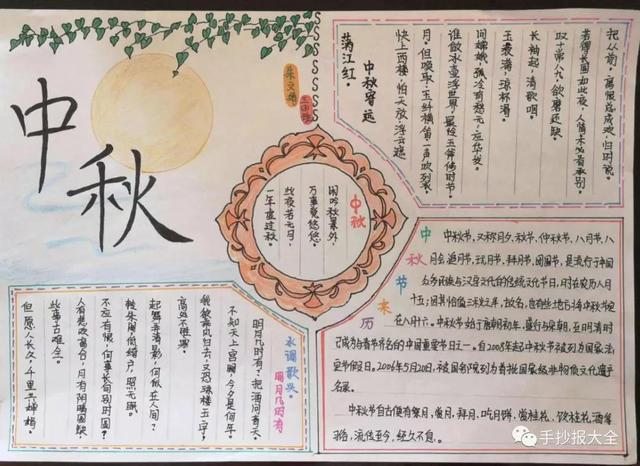 中秋
满江红。
中秋寄远
快上西楼，怕天放，浮云遮
月。但唤取，玉纤横笛，一声吹裂。
谁做冰壶浮世界，最怜玉斧修时节。
问嫦娥，孤冷有愁无，应华发。
满，琼杯滑。
长袖起，清歌咽。
叹十常八九，欲磨还缺。
若得长圆如此夜，人情未必看承别。
把从前，离恨总成欢，归时说。
中秋
闲吟秋景外，
万事觉悠悠。
此夜若无月，
一年虚过秋。
中秋节来历
中秋节，又称月夕、秋节、仲秋节、八月节、八
月会、追月节、玩月节、拜月节、团圆节，是流行于中国
众多民族与汉字文化的传统文化节日，时在农历八月
十五；因其恰值三秋之半，故名，也有些地方将中秋节定
在八月十六。中秋节始于唐朝初年，盛行与宋朝，至明清时
已成为与春节齐名的中国重要节日之一。自2008年起中秋节被列为国家法
定节假日。2006年5月20日，被国务院列为首批国家级非物质文化遗产
名录。
中秋节自古便有祭月、赏月、拜月、吃月饼、赏桂花、饮桂花酒等
习俗，流传至今，经久不息。
水调歌头。
明月几时有
明月几时有？把酒问青天。
不知天上宫阙，今夕是何年。
我欲乘风归去，又恐琼楼玉宇，
高处不胜寒。
起舞弄清影，何似在人间？
转朱阁，低绮户，照无眠。
不应有恨，何事长向别时圆？
人有悲欢离合，月有阴晴圆缺，
此事古难全。
但愿人长久，千里共婵娟。
手抄报大全